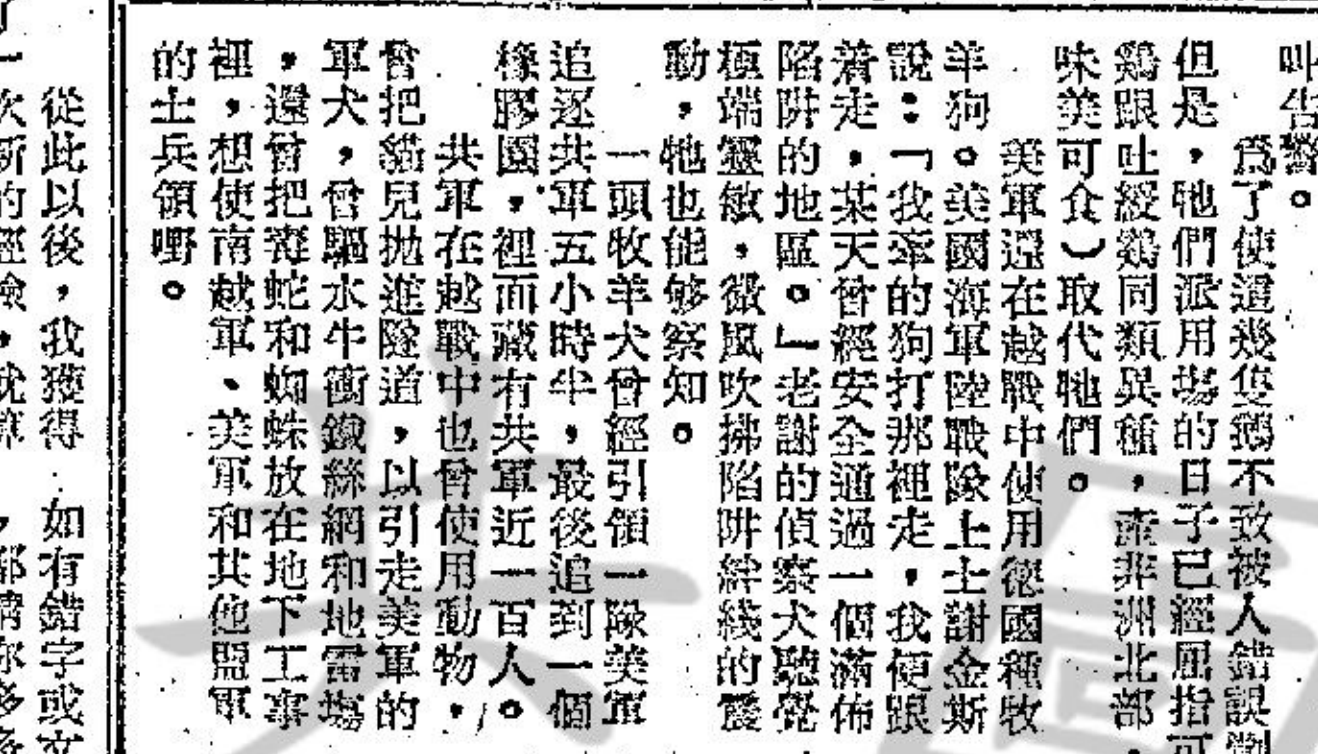 叫告警。
爲了使這幾隻鵝不致被人錯誤
但是，牠們派用場的日子已經屈指可
鷄跟吐綬鷄同類異種，產非洲北部，
味美可食）取代牠們。
美軍還在越戰中使用德國種牧
羊狗。美國海軍陸戰隊上士謝金斯
說：「我牽的狗打那裡走，我便跟
着走，某天曾經安全通過一個滿佈
陷阱的地區。」老謝的偵察犬聽覺
極端靈敏，微風吹拂陷阱絆綫的震
動，牠也能够察知。
一頭牧羊犬曾經引領一隊美軍
追逐共軍五小時半，最後追到一個
橡膠園，裡而藏有共軍近一百人。
共軍在越戰中也曾使用動物，
曾把貓兒拋進隧道，以引走美軍的
軍犬，曾驅水牛衝鐵絲網和地雷塲
，還曾把毒蛇和蜘蛛放在地下工事
裡，想使南越軍、美軍和其他盟軍
的士兵領嘢。
從此以後，我獲得
如有錯字或文
一次新的經驗，就算